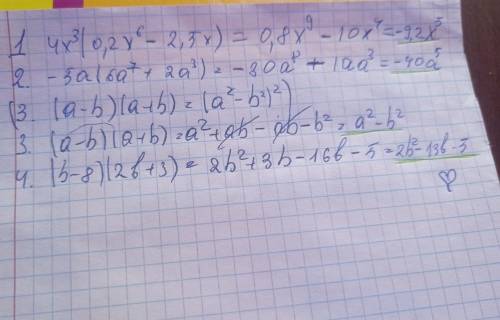 1 4x³(0,2x⁶ - 2,5x) = 0,8x⁹ - 10x⁴ = -9,2x⁵
2. -5a(6a⁷ + 2a³) = -30a⁸ + 10a³ = -40a⁵
(3. (a-b)(a+b) = (a²-b²)²)
3. (a-b)(a+b) = a² + ab - ab - b² = a² - b²
4. (b-8)(2b+3) = 2b² + 3b - 16b - 5 = 2b² - 13b - 5
♡